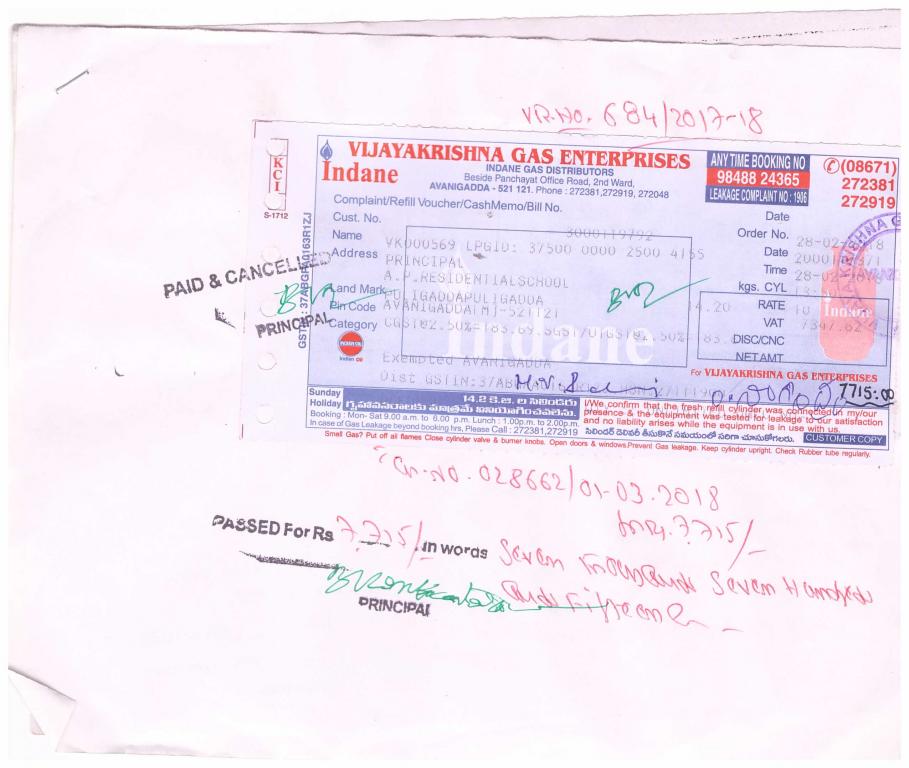 VR.NO. 684/2017-18
KCI
S-1712
VIJAYAKRISHNA GAS ENTERPRISES
Indane
INDANE GAS DISTRIBUTORS
Beside Panchayat Office Road, 2nd Ward,
AVANIGADDA - 521 121. Phone : 272381,272919, 272048
ANY TIME BOOKING NO
98488 24365
LEAKAGE COMPLAINT NO : 1906
(08671)
272381
272919
Complaint/Refill Voucher/CashMemo/Bill No.
Cust. No.
3000119792
Date
28-02-2018
Order No.
Name
VK000569 LPGID: 37500 0000 2500 4165
Date
Address
PRINCIPAL
Time
28-02-2018
A.P.RESIDENTIALSCHOOL
kgs. CYL
Land Mark
PULIGADDAPULIGADDA
RATE
Pin Code
AVANIGADDA(M)-521121
VAT
Category
DISC/CNC
NET AMT
Exempted AVANIGADDA
Indane
Indane
Indian Oil
PAID & CANCELLED
PRINCIPAL
For VIJAYAKRISHNA GAS ENTERPRISES
7715:00
Sunday
Holiday
14.2 కి.జి. ల సిలిండరు
గృహావసరాలకు మాత్రమే వినియోగించవలెను.
Booking : Mon- Sat 9.00 a.m. to 6.00 p.m. Lunch : 1.00p.m. to 2.00p.m.
In case of Gas Leakage beyond booking hrs, Please Call : 272381,272919
I/We confirm that the fresh refill cylinder was connected in my/our
presence & the equipment was tested for leakage to our satisfaction
and no liability arises while the equipment is in use with us.
సిలిండర్ డెలివరీ తీసుకొనే సమయంలో సరిగా చూసుకోగలరు.
CUSTOMER COPY
Smell Gas? Put off all flames Close cylinder valve & burner knobs. Open doors & windows.Prevent Gas leakage. Keep cylinder upright. Check Rubber tube regularly.
Ch.NO. 028662/01-03.2018
7,715/-
PASSED For Rs 7,715/- in words Seven Thousand Seven Hundred
and Fifteen
PRINCIPAL